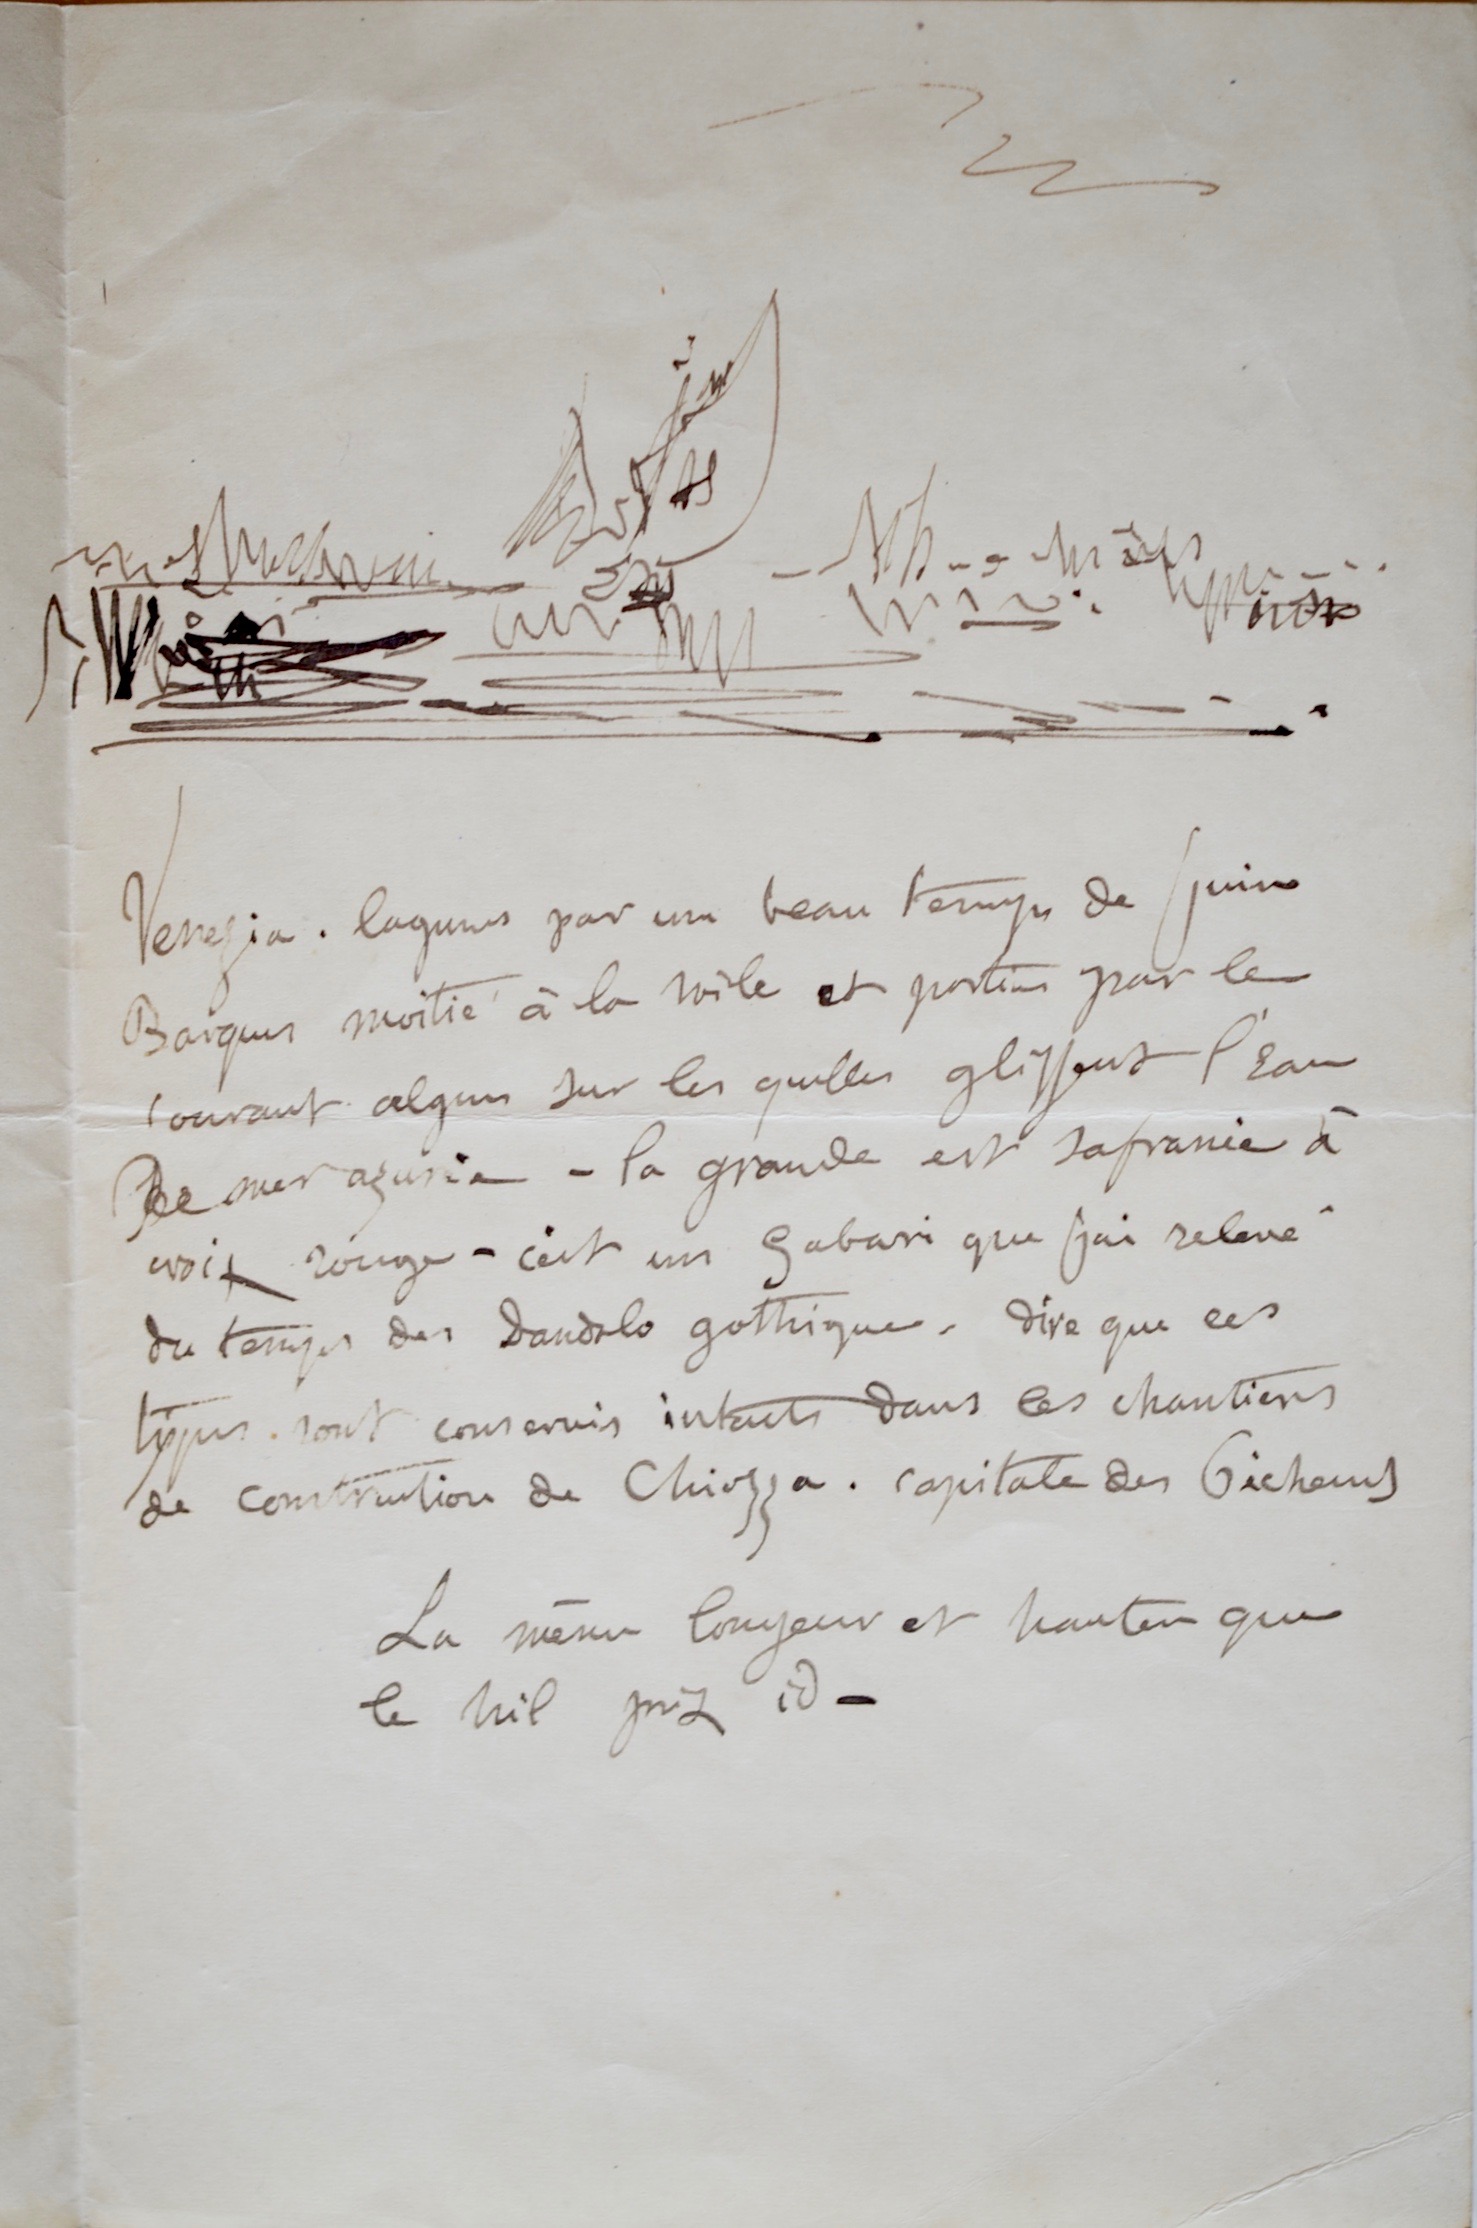 Venezia. lagunes par un beau temps de juin
Barques moitié à la voile et portées par le
courant algues sur les quelles glissent l'Eau
De mer azurée - la grande est safranée à
croix rouge - c'est un gabari que j'ai relevé
du temps des Dandolo gothique. dire que ces
types sont conservés intacts dans les chantiers
de construction de Chiozza. capitale des Pêcheurs
La même longueur et hauteur que
le Nil prix id -